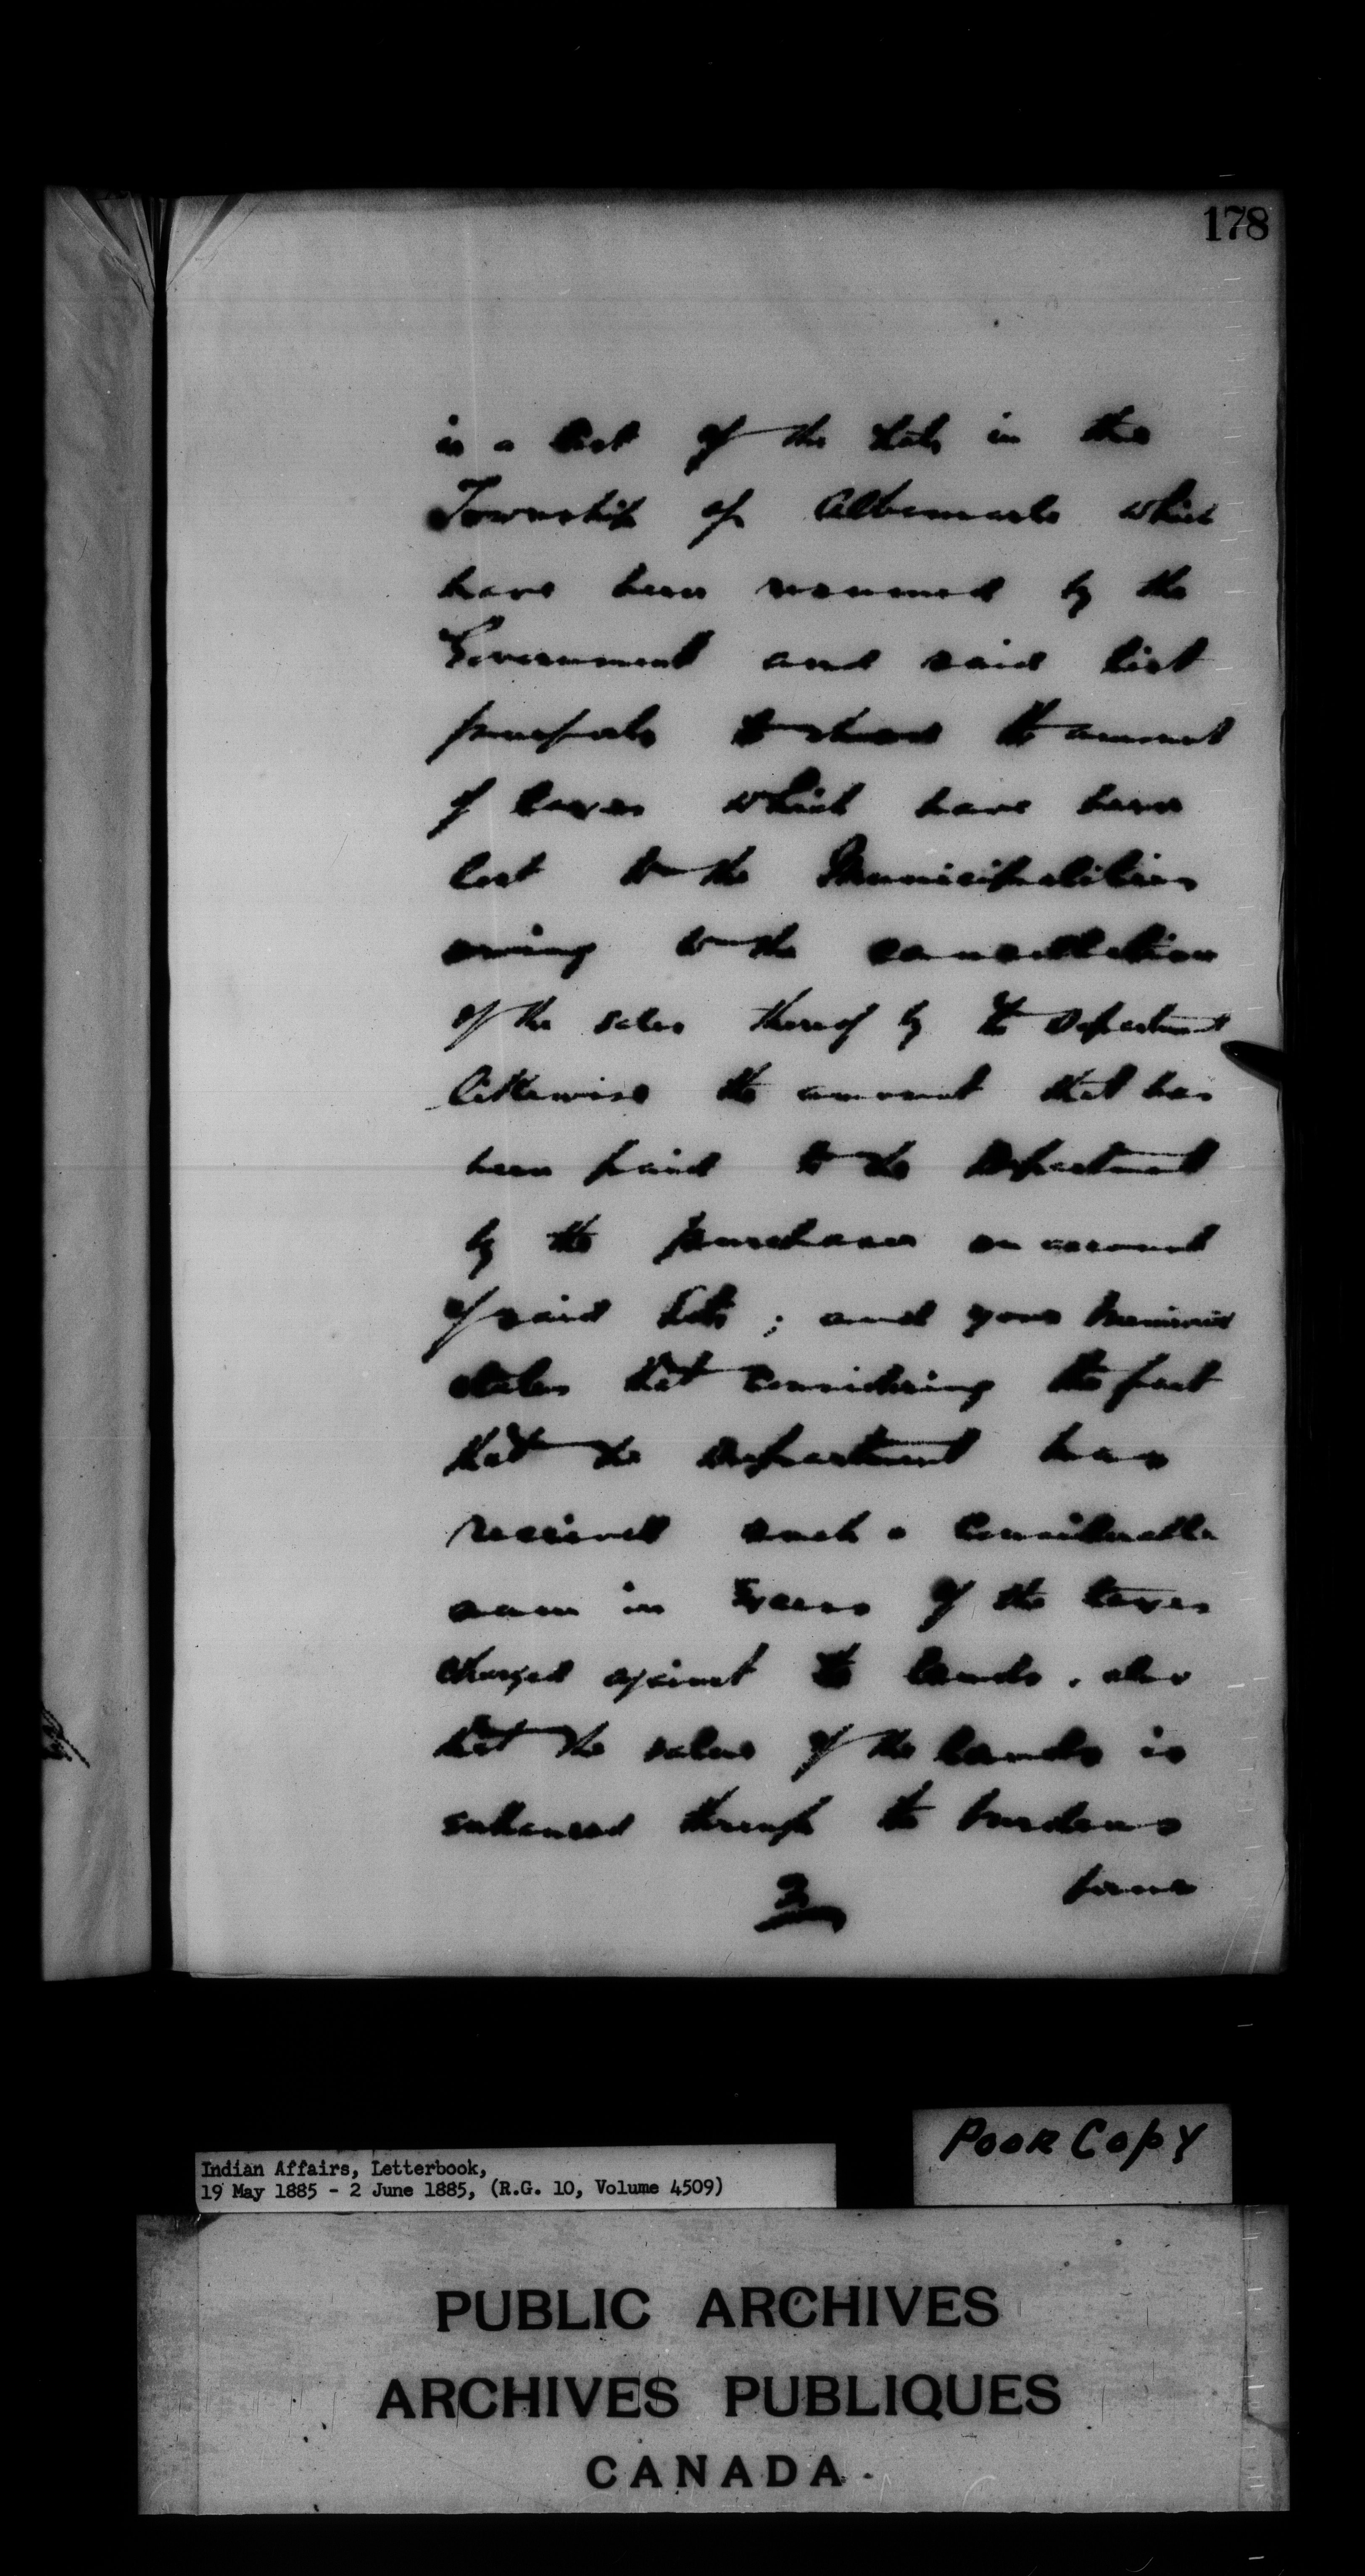 178
is a list of the lots in the
Township of Albemarle which
have been resumed by the
Government and said list
purports to show the amount
of taxes which have been
lost to the Municipalities
owing to the cancellation
of the sales thereof by the Department
likewise the amount that has
been paid to the Department
by the purchasers on account
of said lots; and your
states that considering the fact
that the Department has
received such a considerable
sum in excess of the taxes
charged against the lands, also
that the value of the lands is
enhanced through the burdens
2
borne
Poor Copy
Indian Affairs, Letterbook,
19 May 1885 - 2 June 1885, (R.G. 10, Volume 4509)
PUBLIC ARCHIVES
ARCHIVES PUBLIQUES
CANADA